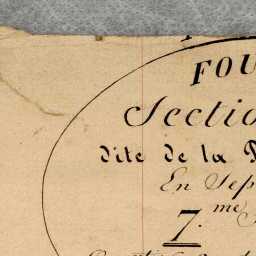 FOU
Sectio
dite de la P
En Sep
7.me